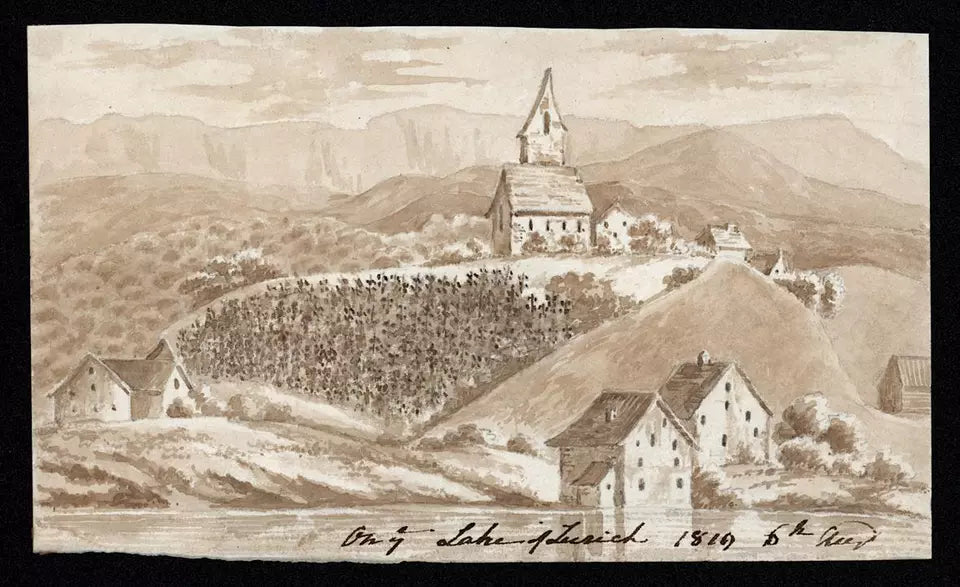 On yͤ Lake of Zurich 1819 6th Augt